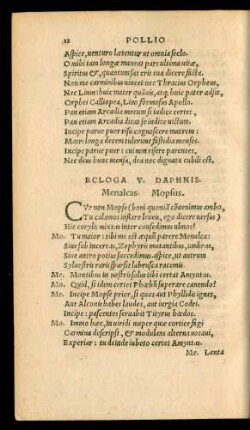 12 POLLIO
Aspice, venturo lætentur ut omnia seclo.
O mihi tam longæ maneat pars ultima vitæ,
Spiritus &, quantum sat erit tua dicere facta.
Non me carminibus vincet nec Thracius Orpheus,
Nec Linus: huic mater quāvis, atq; huic pater adsit,
Orphei Calliopea, Lino formosus Apollo.
Pan etiam Arcadia mecum si iudice certet,
Pan etiam Arcadia dicat se iudice victum.
Incipe parve puer risu cognoscere matrem:
Matri longa decem tulerunt fastidia menses.
Incipe parve puer: cui non risere parentes,
Nec deus hunc mensa, dea nec dignata cubili est.
ECLOGA V. DAPHNIS.
Menalcas. Mopsus.
CVr non Mopse (boni quoniā cōvenimus ambo,
Tu calamos inflare leves, ego dicere versus)
Hic corylis mixtas inter consedimus ulmos?
Mo. Tu maior: tibi me est æquū parere Menalca:
Sive sub incertas, Zephyris motantibus, umbras,
Sive antro potius succedimus. aspice, ut antrum
Sylvestris raris sparsit labrusca racemis.
Me. Montibus in nostris solus tibi certet Amyntas.
Mo. Quid, si idem certet Phœbū superare canendo?
Me. Incipe Mopse prior, si quos aut Phyllidis ignes,
Aut Alconis habes laudes, aut iurgia Codri.
Incipe: pascentes servabit Tityrus hœdos.
Mo. Immo hæc, in viridi nuper quæ cortice fagi
Carmina descripsi, & modulans alterna notavi,
Experiar: tu deinde iubeto certet Amyntas.
Me. Lenta